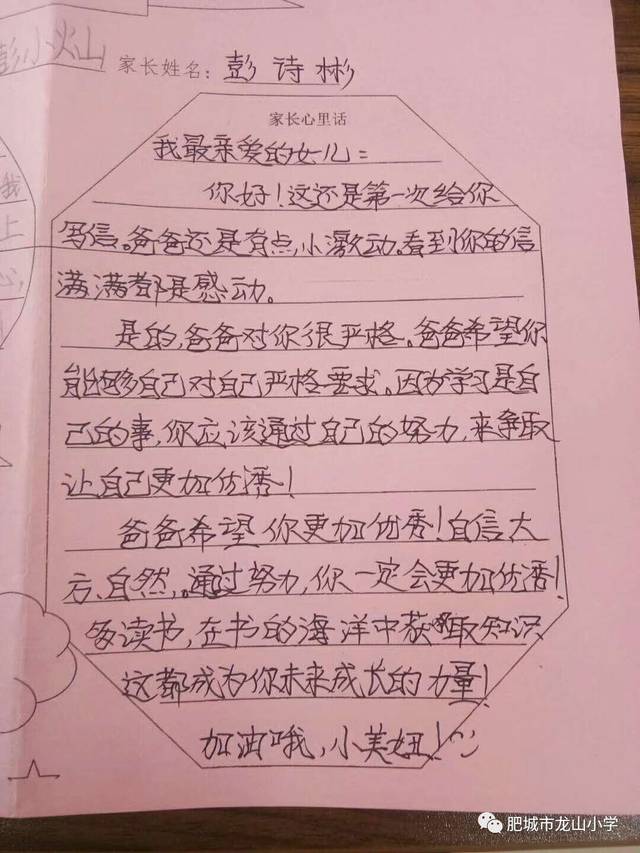 彭小火山
家长姓名：彭诗彬
家长心里话
我最亲爱的女儿：
你好！这还是第一次给你
写信。爸爸还是有点小激动。看到你的信
满满都是感动。
是的，爸爸对你很严格。爸爸希望你
能够自己对自己严格要求。因为学习是自
己的事，你应该通过自己的努力，来争取
让自己更加优秀！
爸爸希望你更加优秀！自信大
方、自然，。通过努力，你一定会更加优秀！
多读书，在书的海洋中获取知识
这都成为你未来成长的力量！
加油哦，小美妞！
我
上
心，
肥城市龙山小学